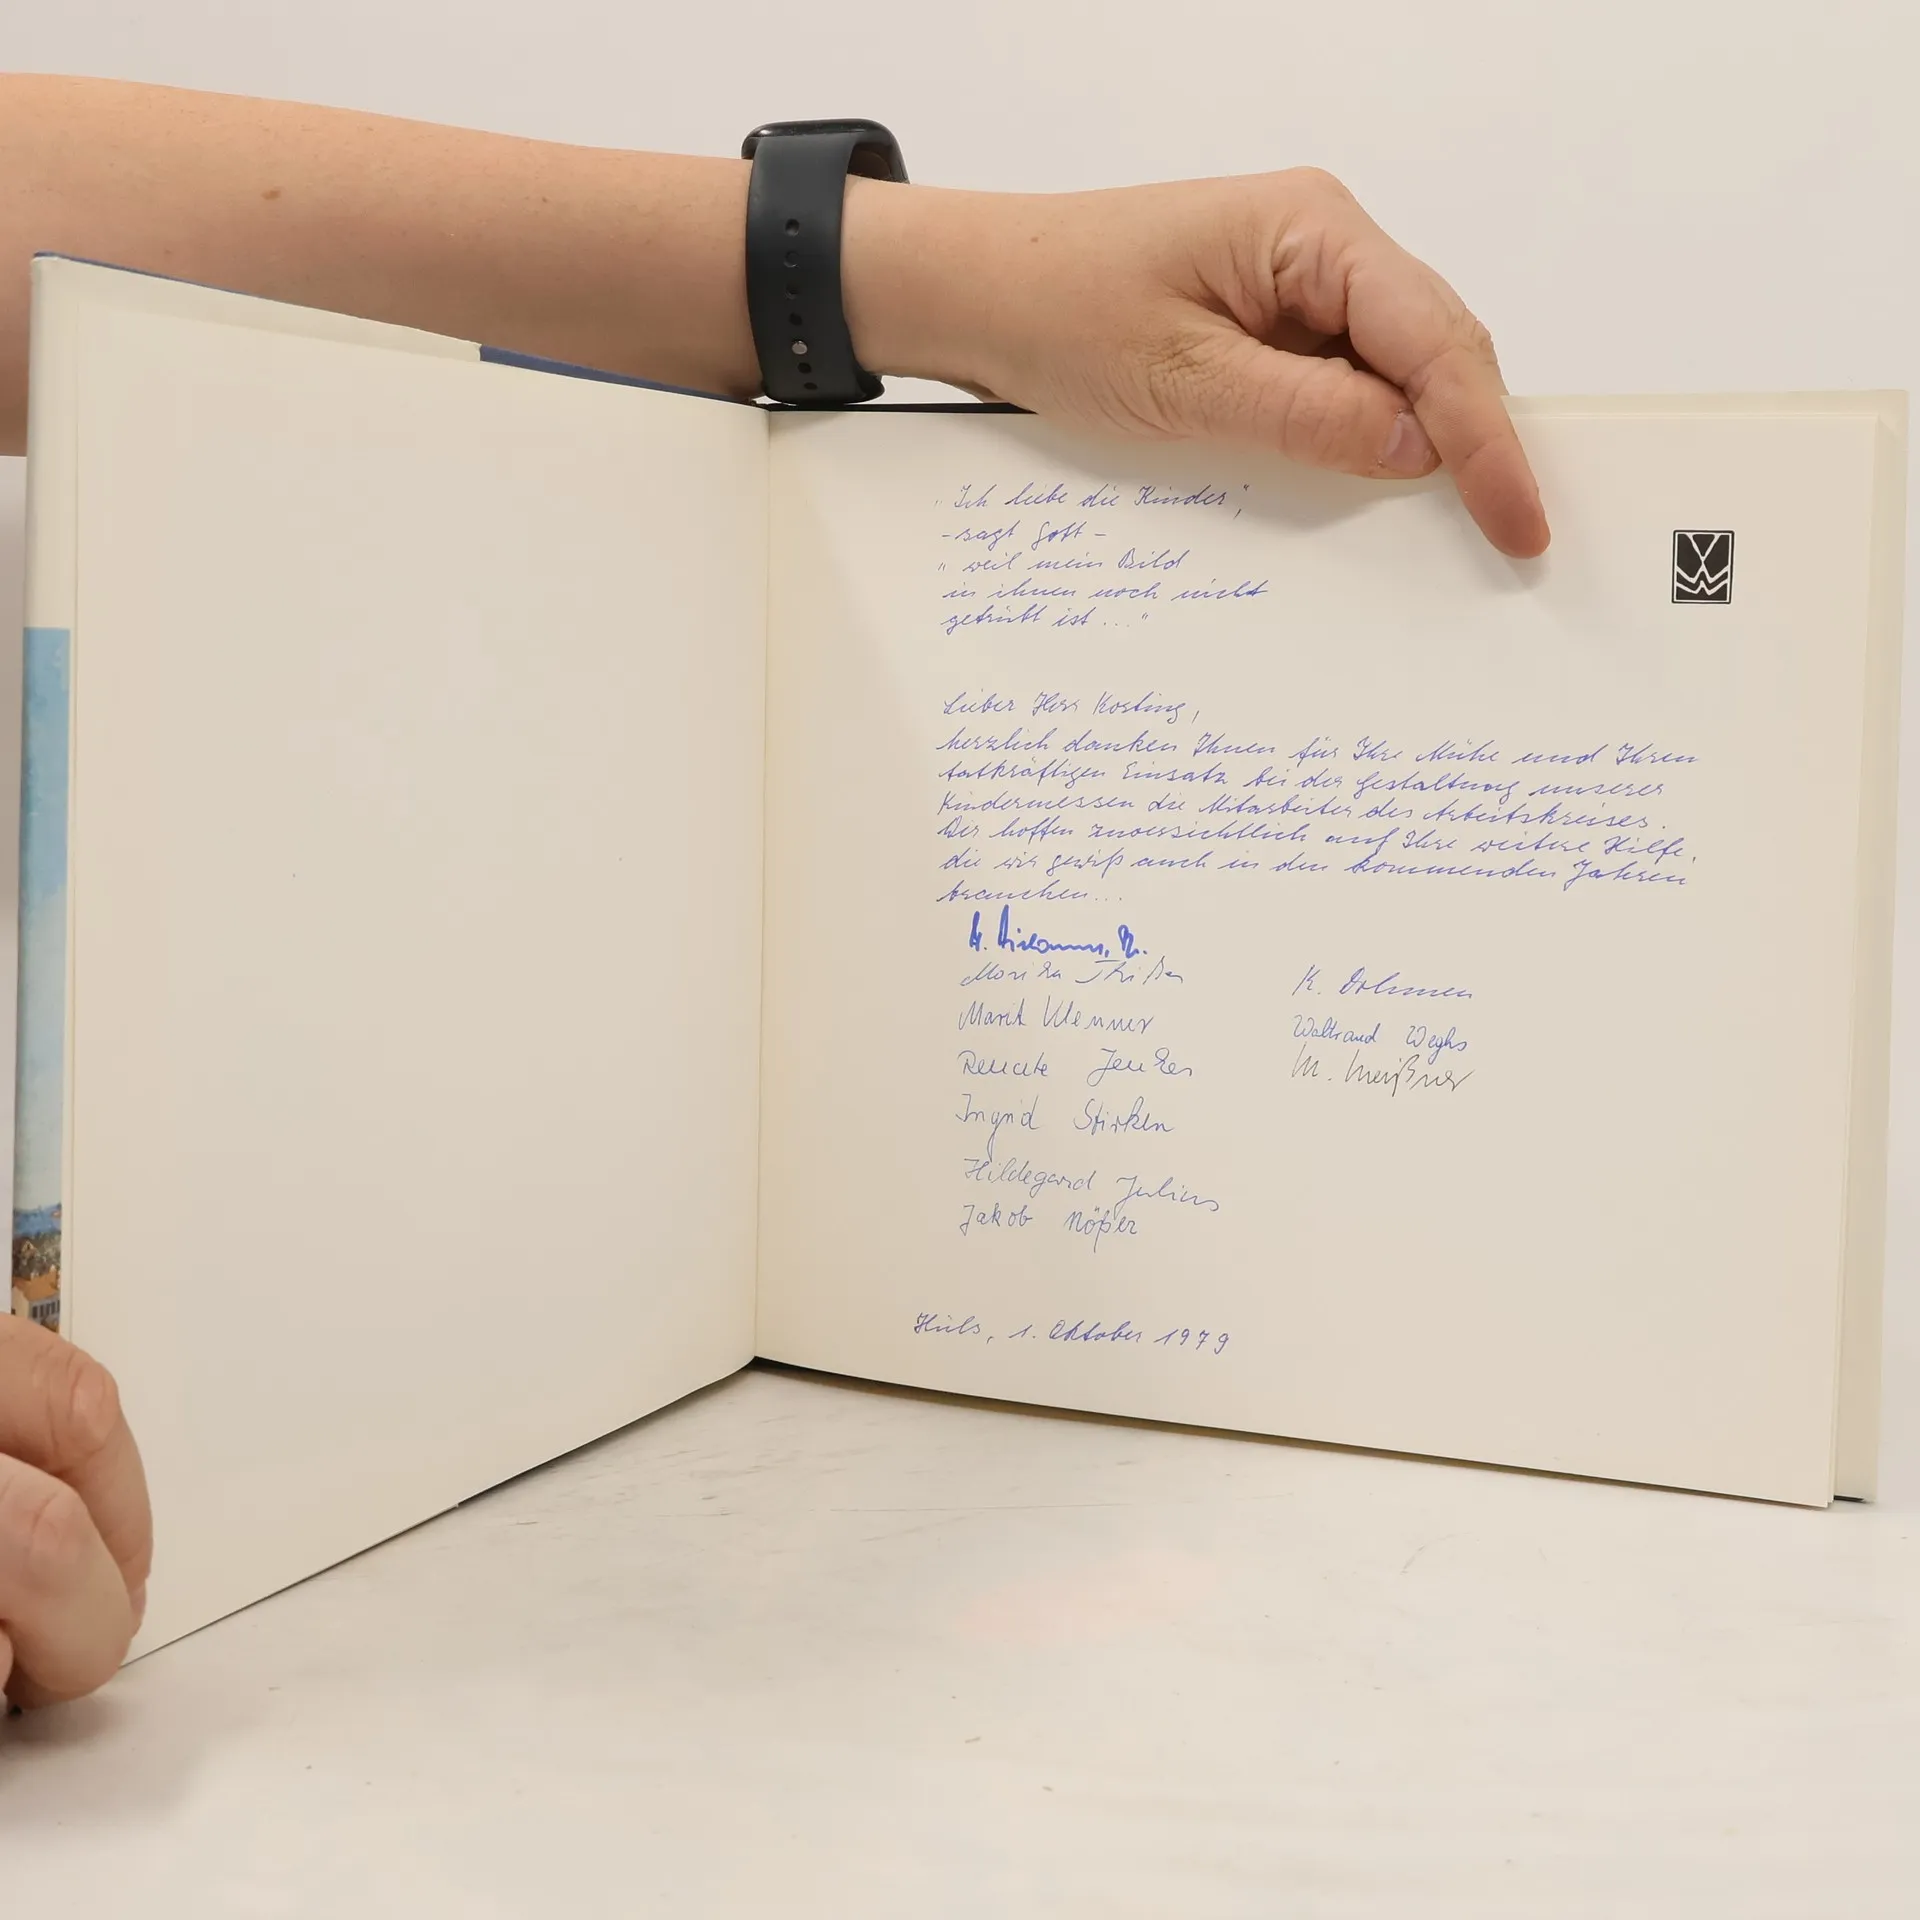 "Ich liebe die Kinder",
- sagt Gott -
"weil mein Bild
in ihnen noch nicht
getrübt ist ..."
Lieber Herr Kosting,
herzlich danken Ihnen für Ihre Mühe und Ihren
tatkräftigen Einsatz bei der Gestaltung unserer
Kindermessen die Mitarbeiter des Arbeitskreises.
Wir hoffen zuversichtlich auf Ihre weitere Hilfe,
die wir gewiß auch in den kommenden Jahren
brauchen...
Marit Klenner
Renate Jenkes
Ingrid Stirken
Hildegard Julius
Jakob Nößer
K. Dohmen
Waltraud Weghs
M. Meißner
Hüls, 1. Oktober 1979